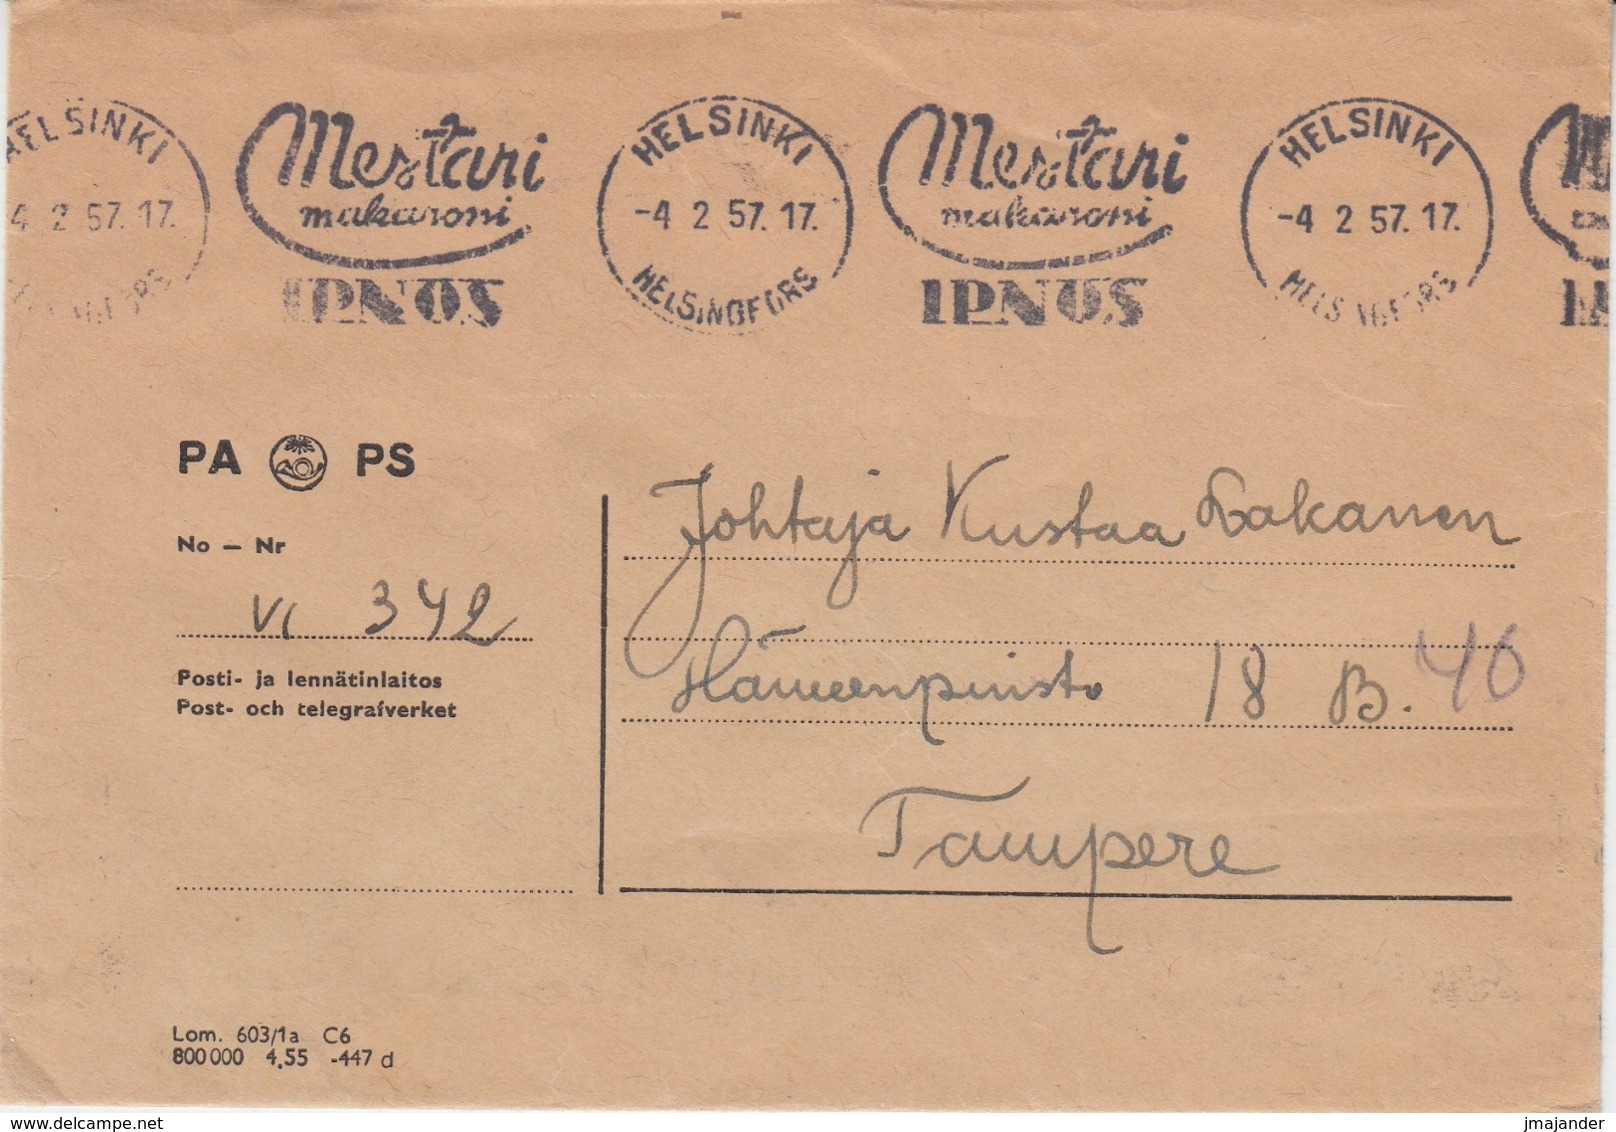 HELSINKI
4 2 57. 17.
Mestari
makaroni
IPNOS
HELSINKI
-4 2 57. 17.
HELSINGFORS
Mestari
makaroni
IPNOS
HELSINKI
-4 2 57. 17.
HELSINGFORS
PA PS
No – Nr
VI 342
Posti- ja lennätinlaitos
Post- och telegrafverket
Johtaja Kustaa Lakanen
Hämeenpuisto 18 B. 40
Tampere
Lom. 603/1a C6
800 000 4.55 -447 d
delcampe.net
jmajander